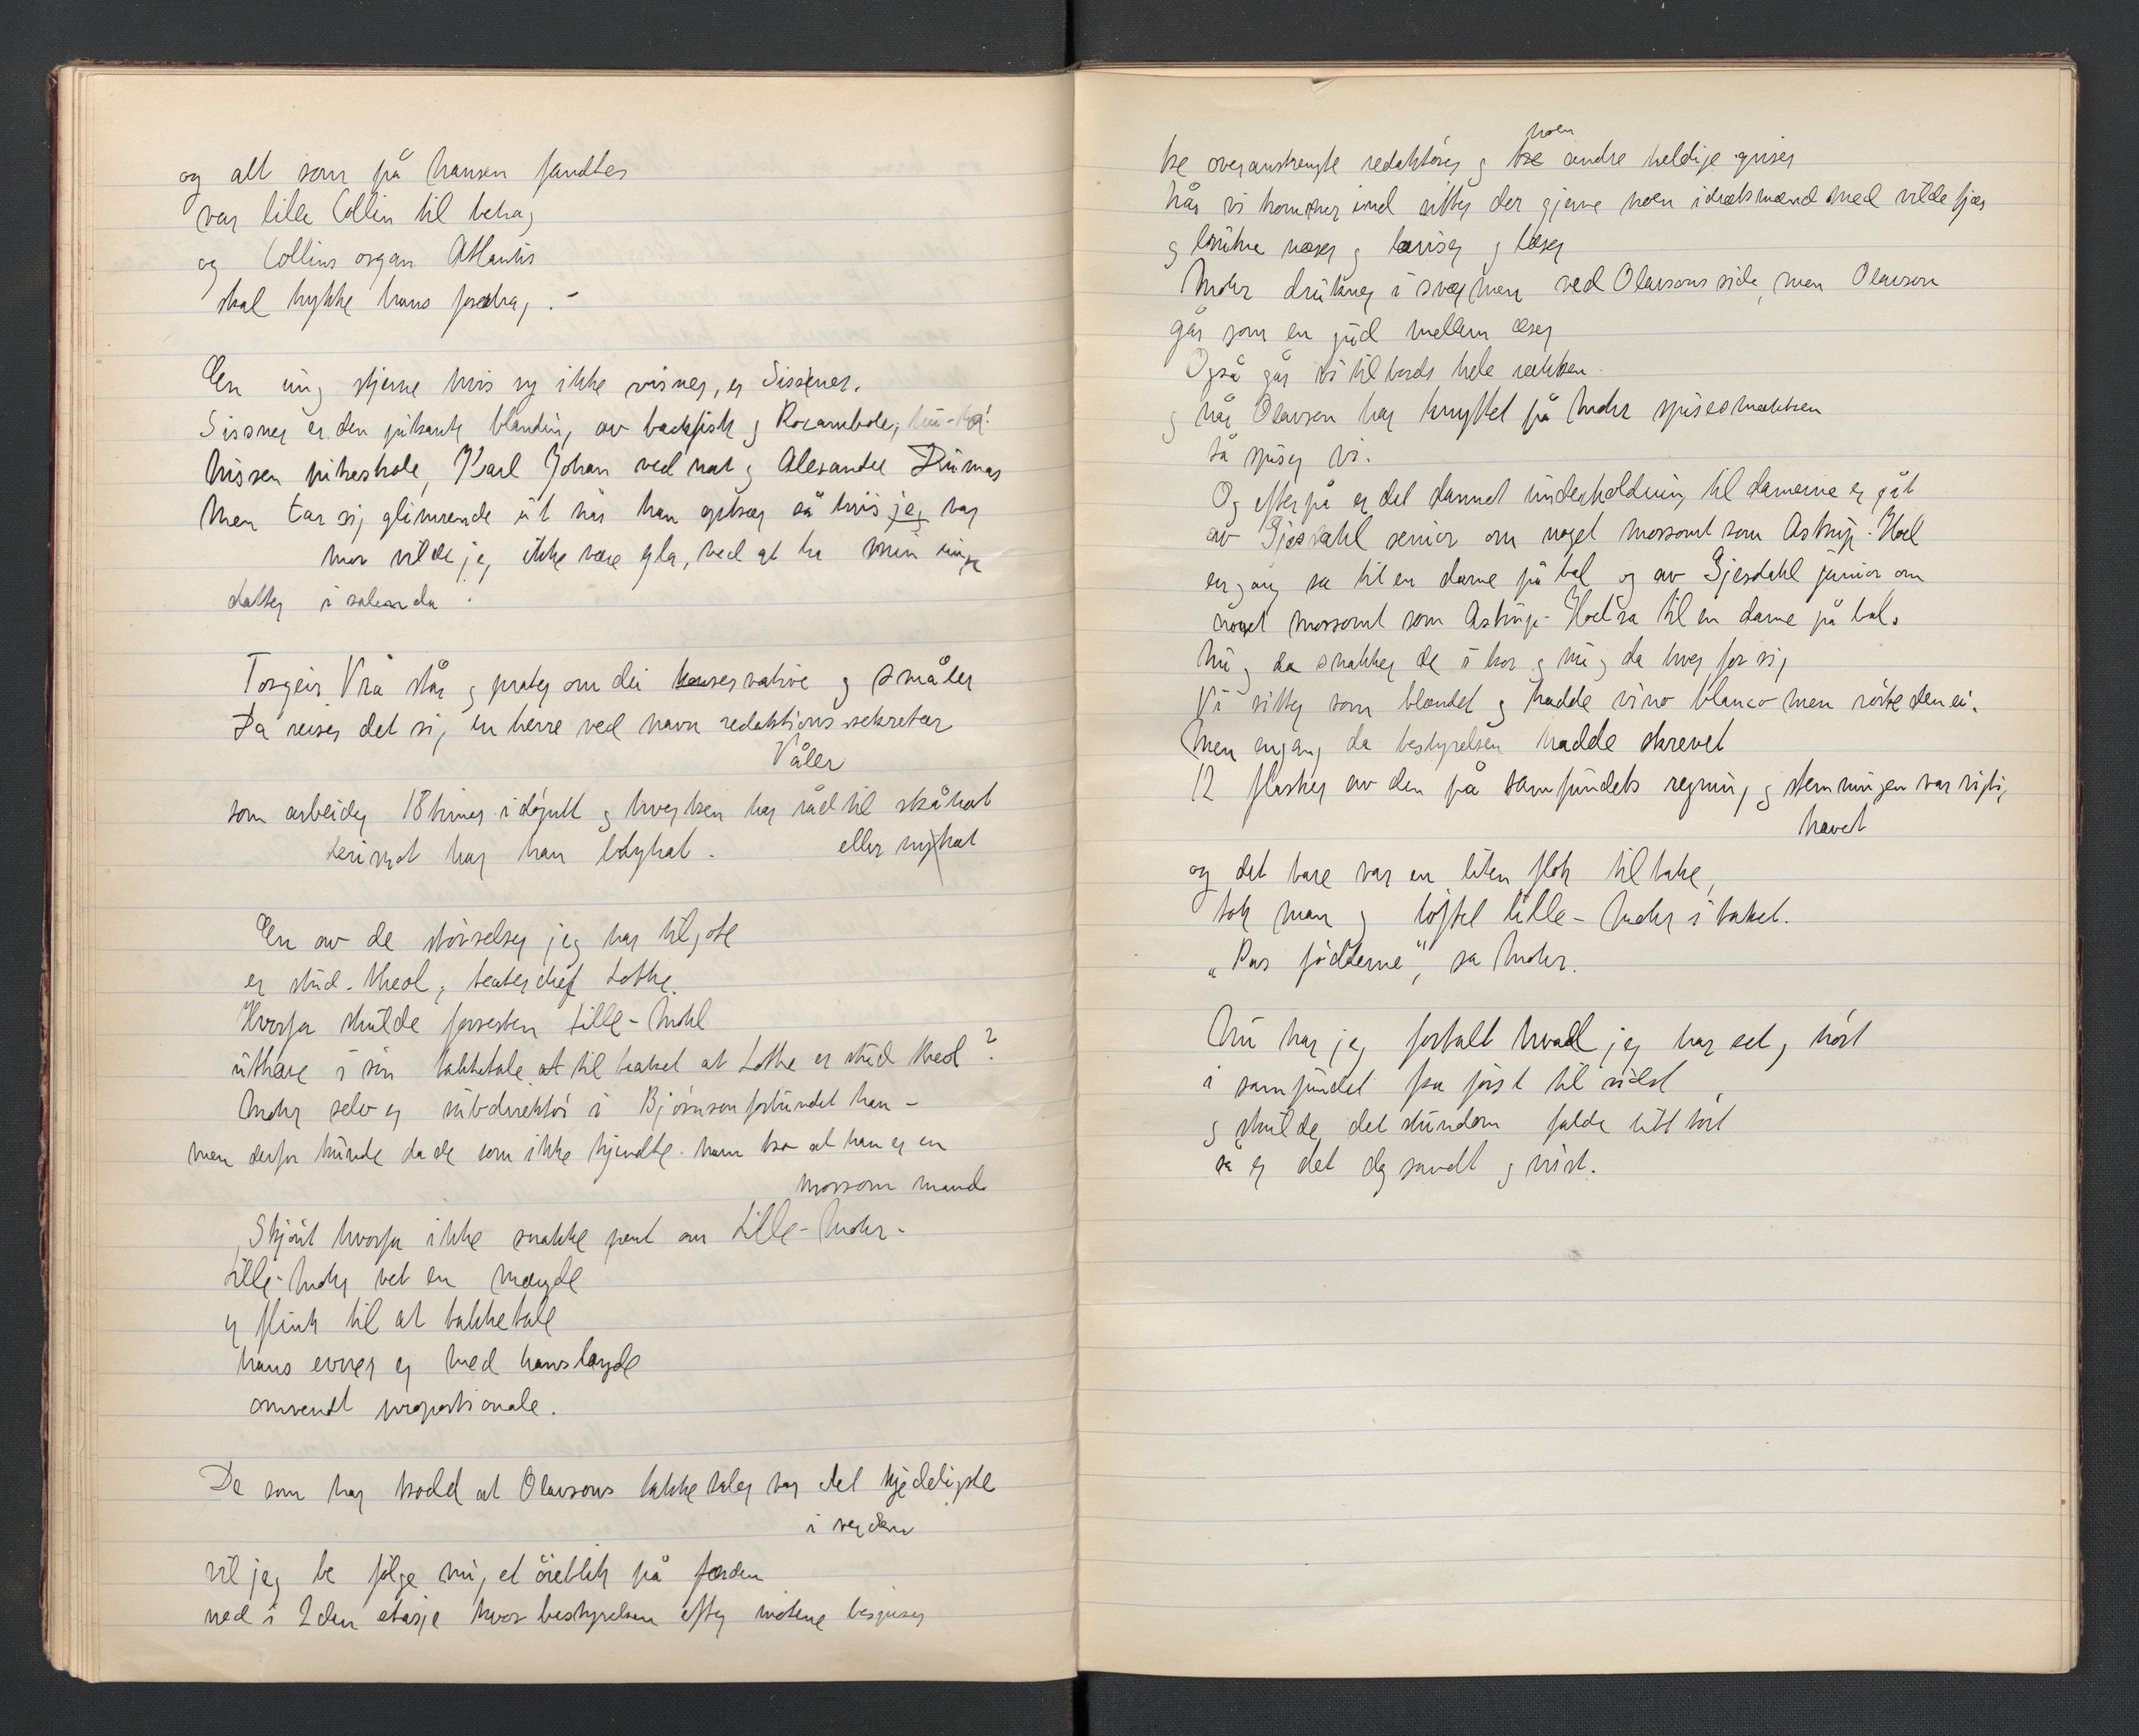 og alt som på hansen fandtes
var lille Collin til behag
og Collins organ Atlantis
skal trykke hans foredrag. –
En ung stjerne hvis ry ikke visner, er Sissener.
Sissner er den pikante blanding av backfish og Rocambole,
Nissen pikeskole, Karl Johan ved nat og Alexandre Dumas
Men tar sig glimrende ut når han optrær så hvis jeg var
mor vilde jeg ikke være gla, ved at ha min unge
datter i salen da.
Torgeir Vrå står og prater om dei konservative og småler
Da reiser det sig en herre ved navn redaktions-sekretær
Våler
som arbeider 18 timer i døgnet og hverken har råd til stråhat
eller nyhat
derimot har han loyhat.
En av de størrelser jeg har tilgode
er stud. theol, teaterchef Lothe.
Hvorfor skulde forresten Lille-Mohr
uthæve i sin takketale at til teatret at Lothe er stud theol?
Mohr selv er subdirektør i Bjørnsonforbundet han –
men derfor kunde da de som ikke kjendte ham tro at han er en
morsom mand
Skjønt hvorfor ikke snakke pent om Lille-Mohr –
Lille-Mohr vet en mængde
er flink til at takketale
hans evner er med hans længde
omvendt proportionale.
De som har trodd at Olavsons takketaler var det kjedeligste
i verden
vil jeg be følge mig et øieblik på færden
ned i 2den etasje hvor bestyrelsen efter møtene bespiser
tre overanstrengte redaktører og noen tre andre heldige griser
når vi kommer ind sitter der gjerne noen idrætsmænd med vilde fjæs
og brutne næser og læser
Mohr drukner i sværmen ved Olavsons side, men Olavson
går som en gud mellem æser
Også går vi til bords hele rækken
og når Olavson har knyttet på Mohr spisesmækken
så spiser vi.
Og efterpå er det dannet underholdning til damerne er gåt
av Gjesdahl senior om noget morsomt som Astrup-Hoel
engang sa til en dame på bal og av Gjesdahl junior om
noget morsomt som Astrup-Hoel sa til en dame på bal.
Nu og da snakker de i kor og nu og da hver for sig
Vi sitter som blændet og hadde vino blanco men rørte den ei.
Men engang da bestyrelsen hadde skrevet
12 flasker av den på samfundets regning og stemningen var rigtig
hævet
og det bare var en liten flok tilbake,
tok man og løftet Lille-Mohr i taket.
"Pas fødderne", sa Mohr.
Nu har jeg fortalt hvad jeg har set og hørt
i samfundet fra først til sidst,
og skulde det stundom falde litt tørt
så er det dog sandt og vist.